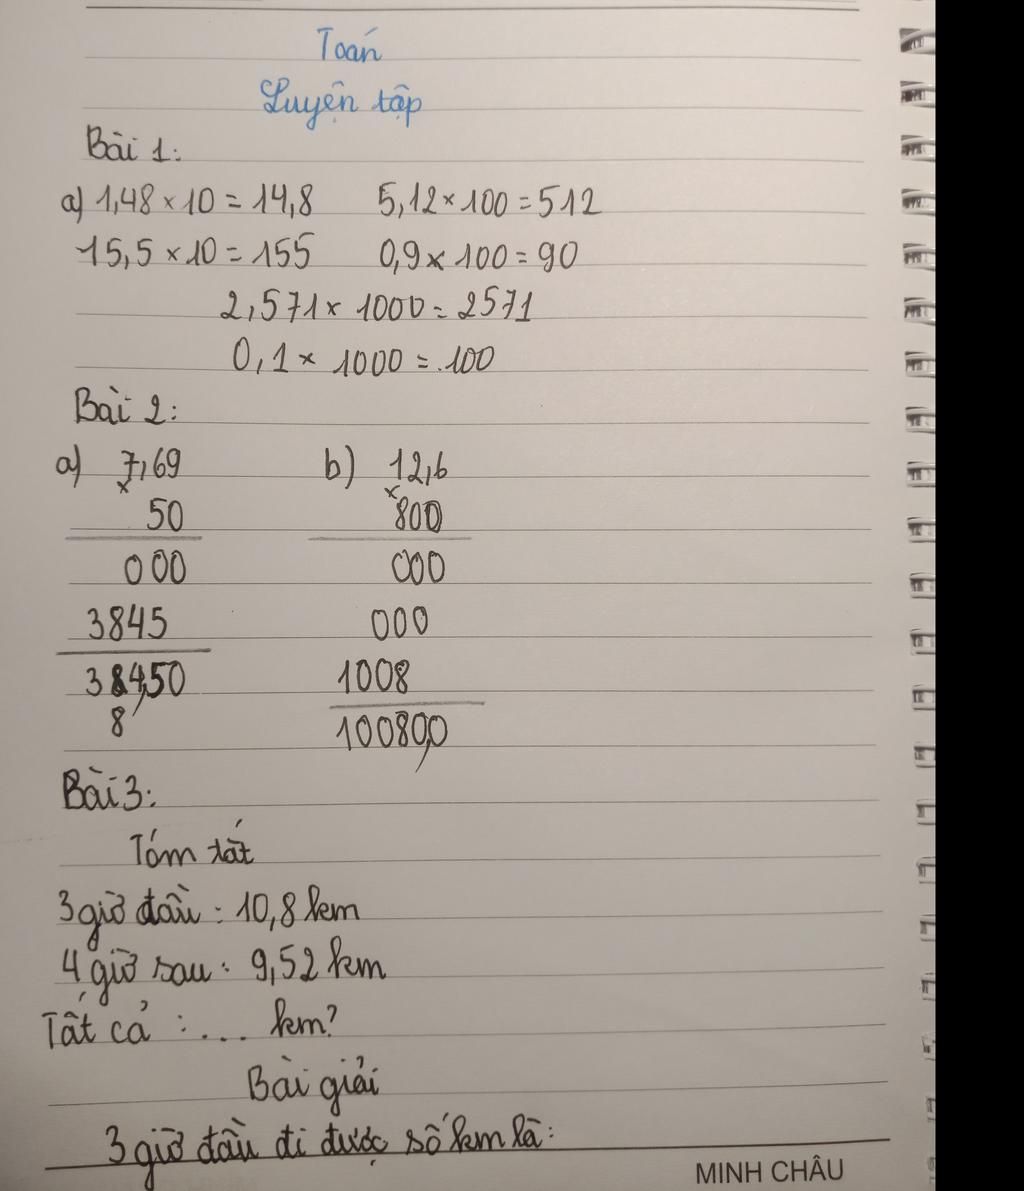 Toán
Luyện tập
Bài 1:
a) 1,48 × 10 = 14,8 5,12 × 100 = 512
15,5 × 10 = 155 0,9 × 100 = 90
2,571 × 1000 = 2571
0,1 × 1000 = 100
Bài 2:
a) 7,69 b) 12,6
× ×
50 800
000 000
3845 000
384,50 1008
8 10080,0
Bài 3:
Tóm tắt
3 giờ đầu : 10,8 km
4 giờ sau : 9,52 km
Tất cả : ... km?
Bài giải
3 giờ đầu đi được số km là:
MINH CHÂU